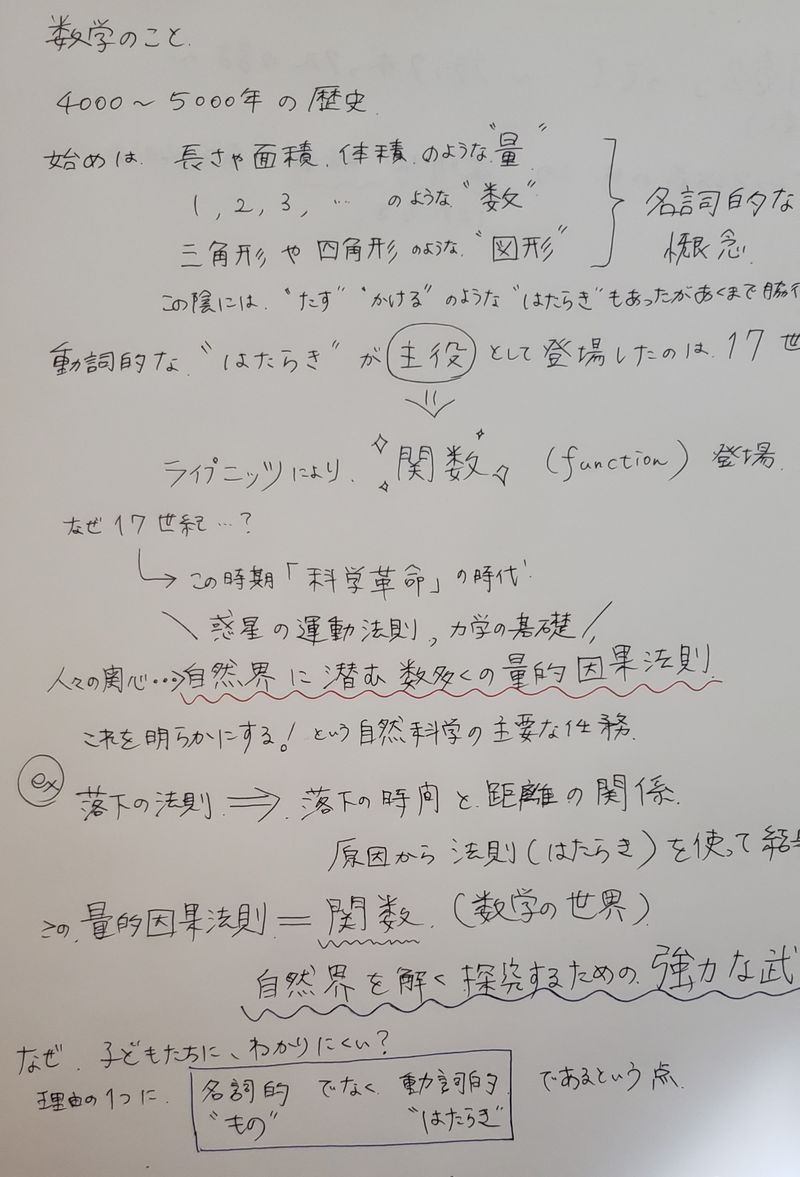 数学のこと.
4000～5000年の歴史.
始めは. 長さや面積、体積、のような“量”
1, 2, 3, … のような“数”
三角形や四角形のような“図形”
名詞的な
概念.
この陰には、“たす”“かける”のような“はたらき”もあったがあくまで脇
動詞的な“はたらき”が主役として登場したのは、17世
ライプニッツにより、関数 (function) 登場.
なぜ17世紀…?
この時期「科学革命」の時代
惑星の運動法則, 力学の基礎
人々の関心…→自然界に潜む数多くの量的因果法則.
これを明らかにする! という自然科学の主要な任務.
ex 落下の法則 ⇒ 落下の時間と距離の関係.
原因から法則(はたらき)を使って結
この量的因果法則 = 関数. (数学の世界)
自然界を解く探究するための強力な武
なぜ、子どもたちに、わかりにくい?
理由の1つに. 名詞的 でなく 動詞的 であるという点.
“もの” “はたらき”